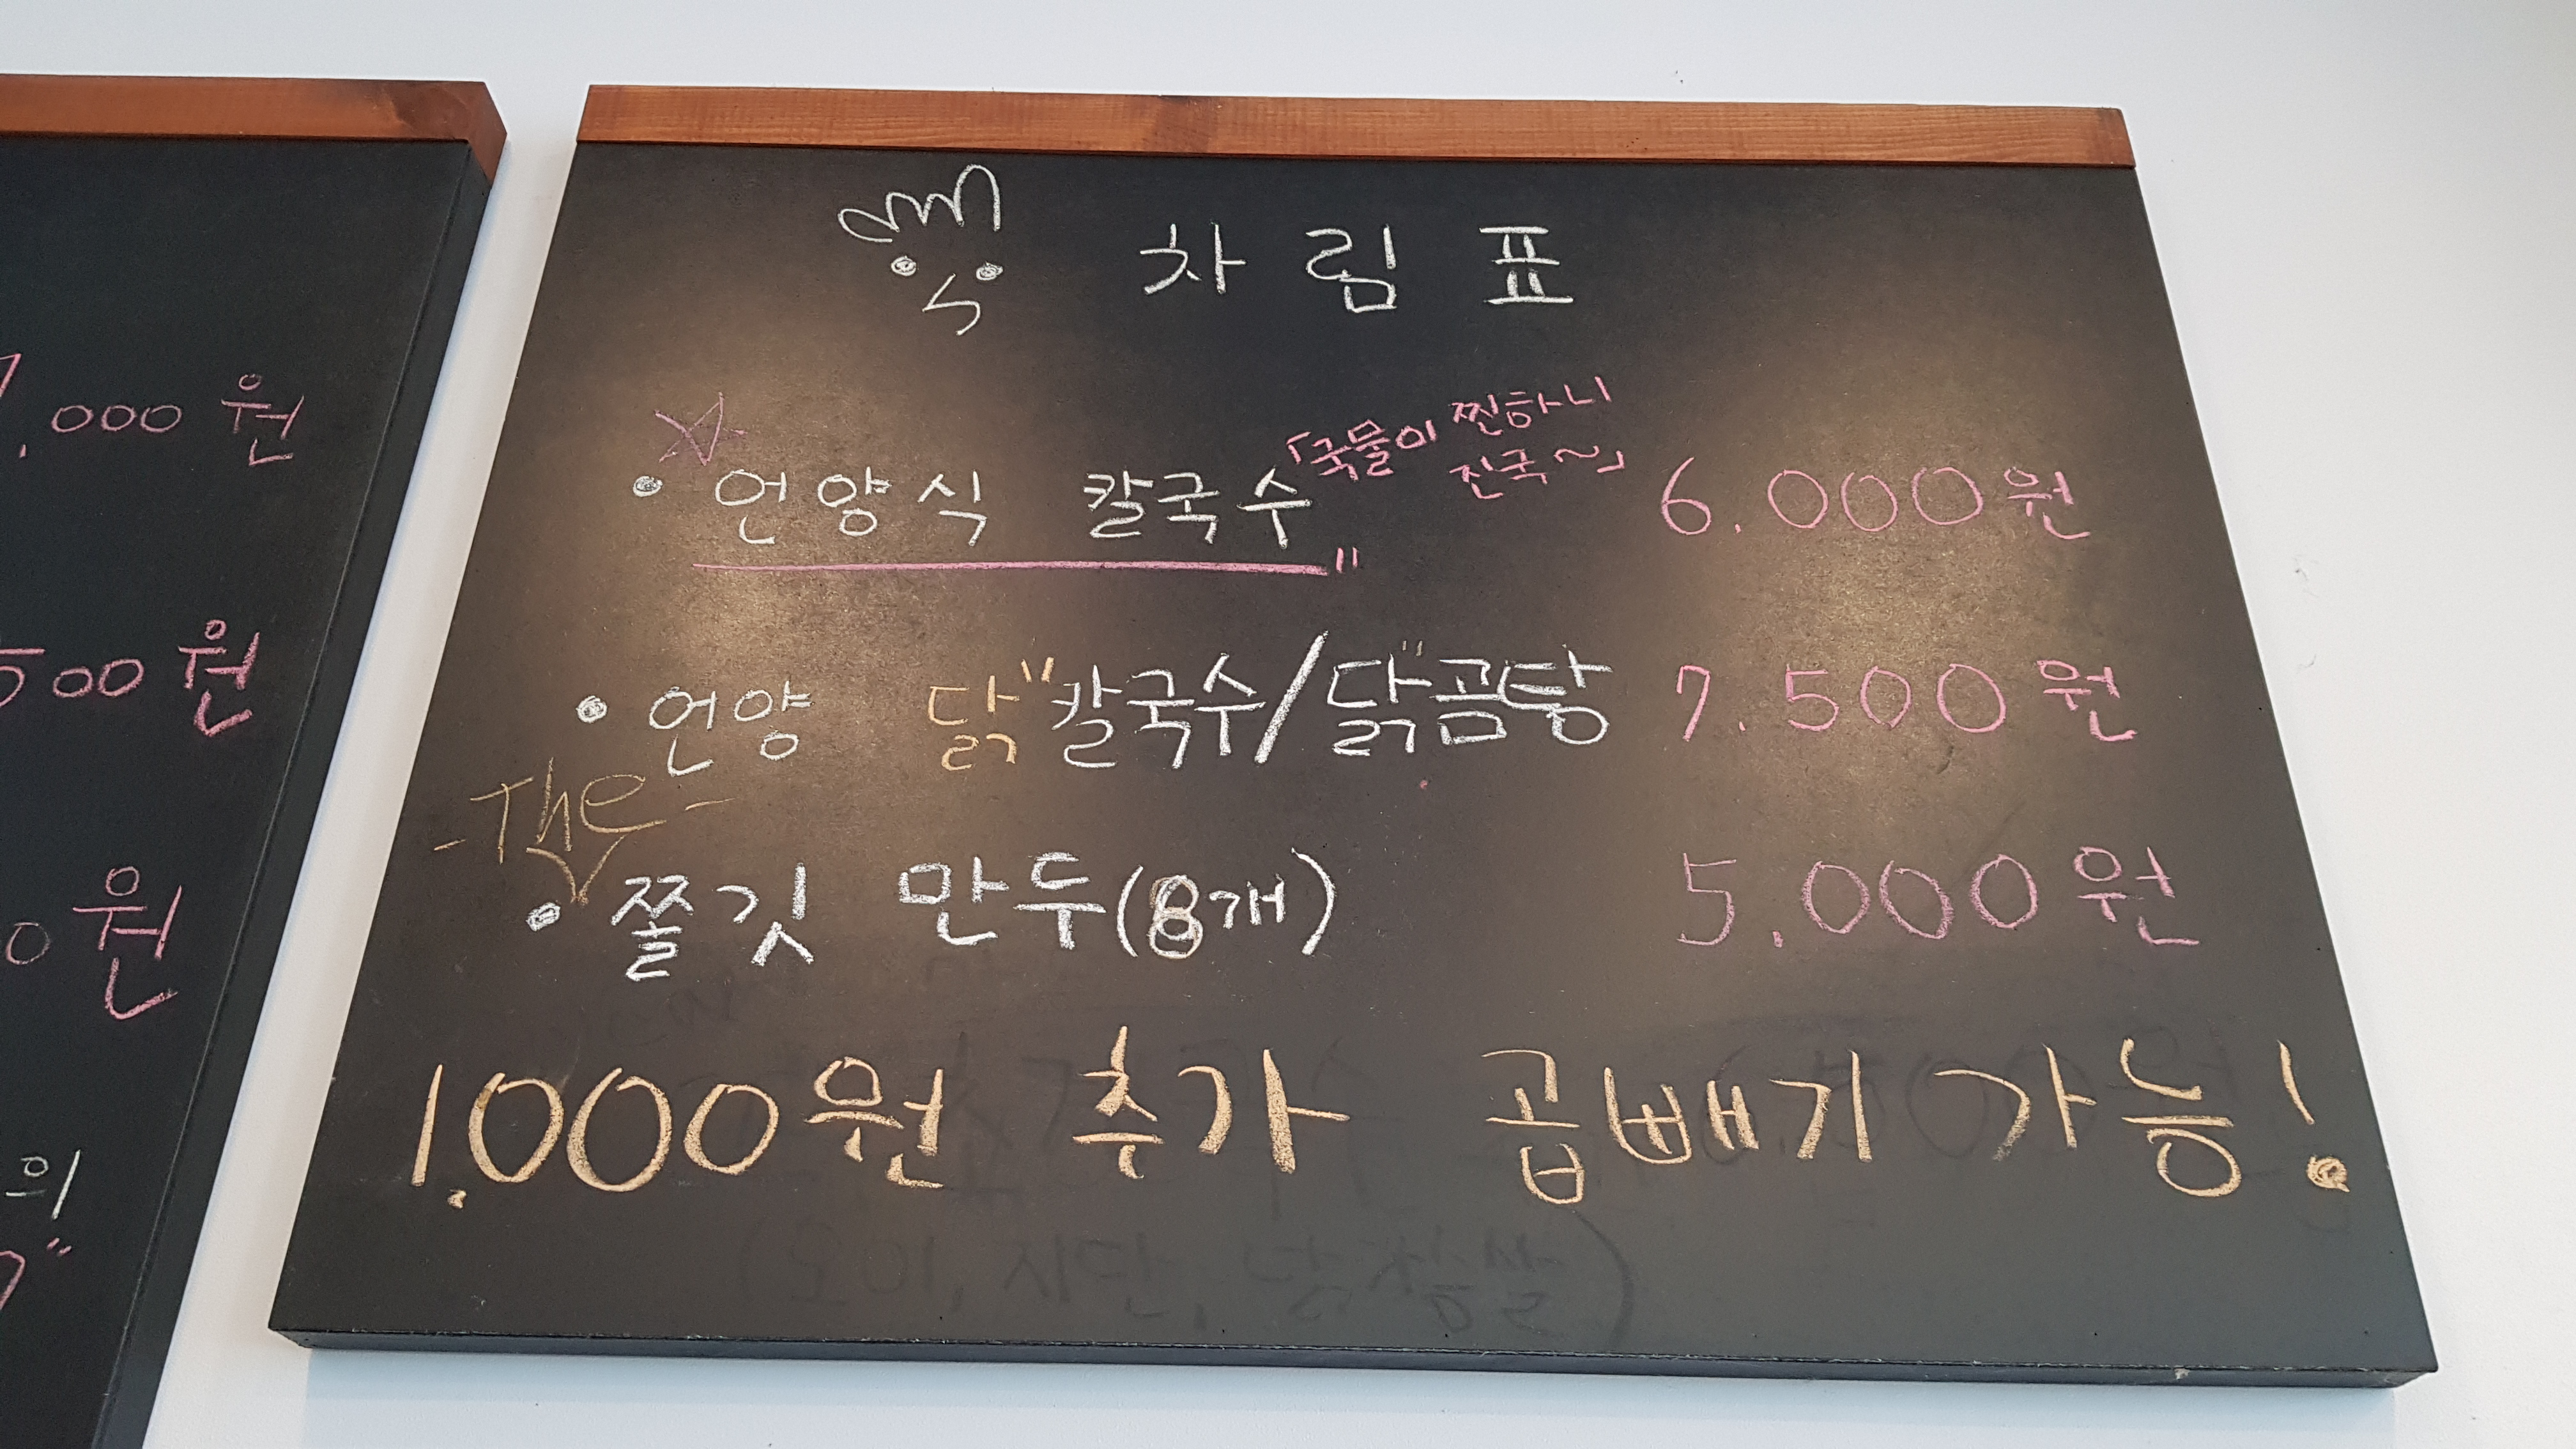 차림표
「국물이 찐하니
진국~」
• 언양식 칼국수 6.000원
• 언양 닭"칼국수/닭"곰탕 7.500원
-The-
• 쫄깃 만두(8개) 5.000원
1.000원 추가 곱빼기 가능!
.000원
500원
0원
의